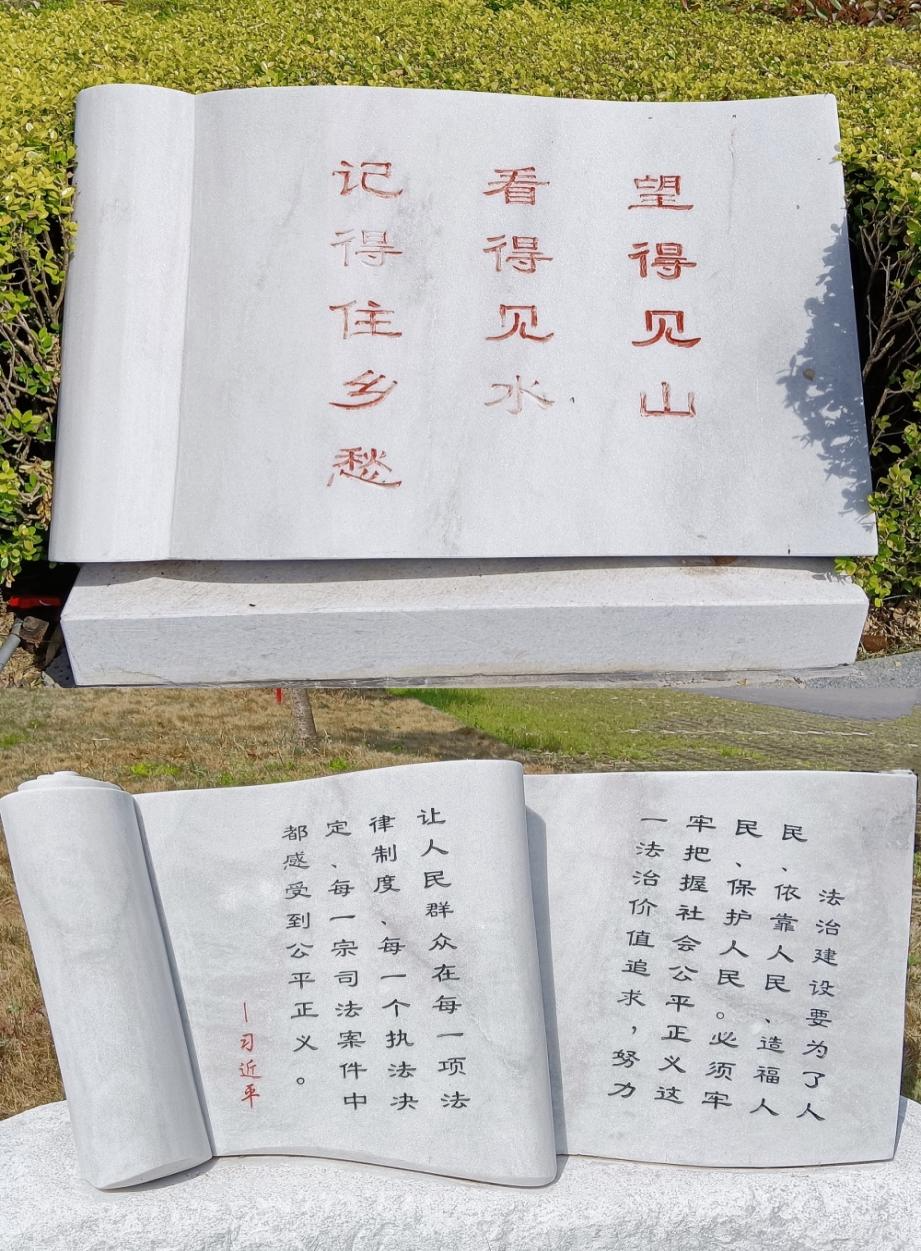 望得见山
看得见水
记得住乡愁
法治建设要为了人
民、依靠人民、造福人
民、保护人民。必须牢
牢把握社会公平正义这
一法治价值追求，努力
让人民群众在每一项法
律制度、每一个执法决
定、每一宗司法案件中
都感受到公平正义。
—习近平